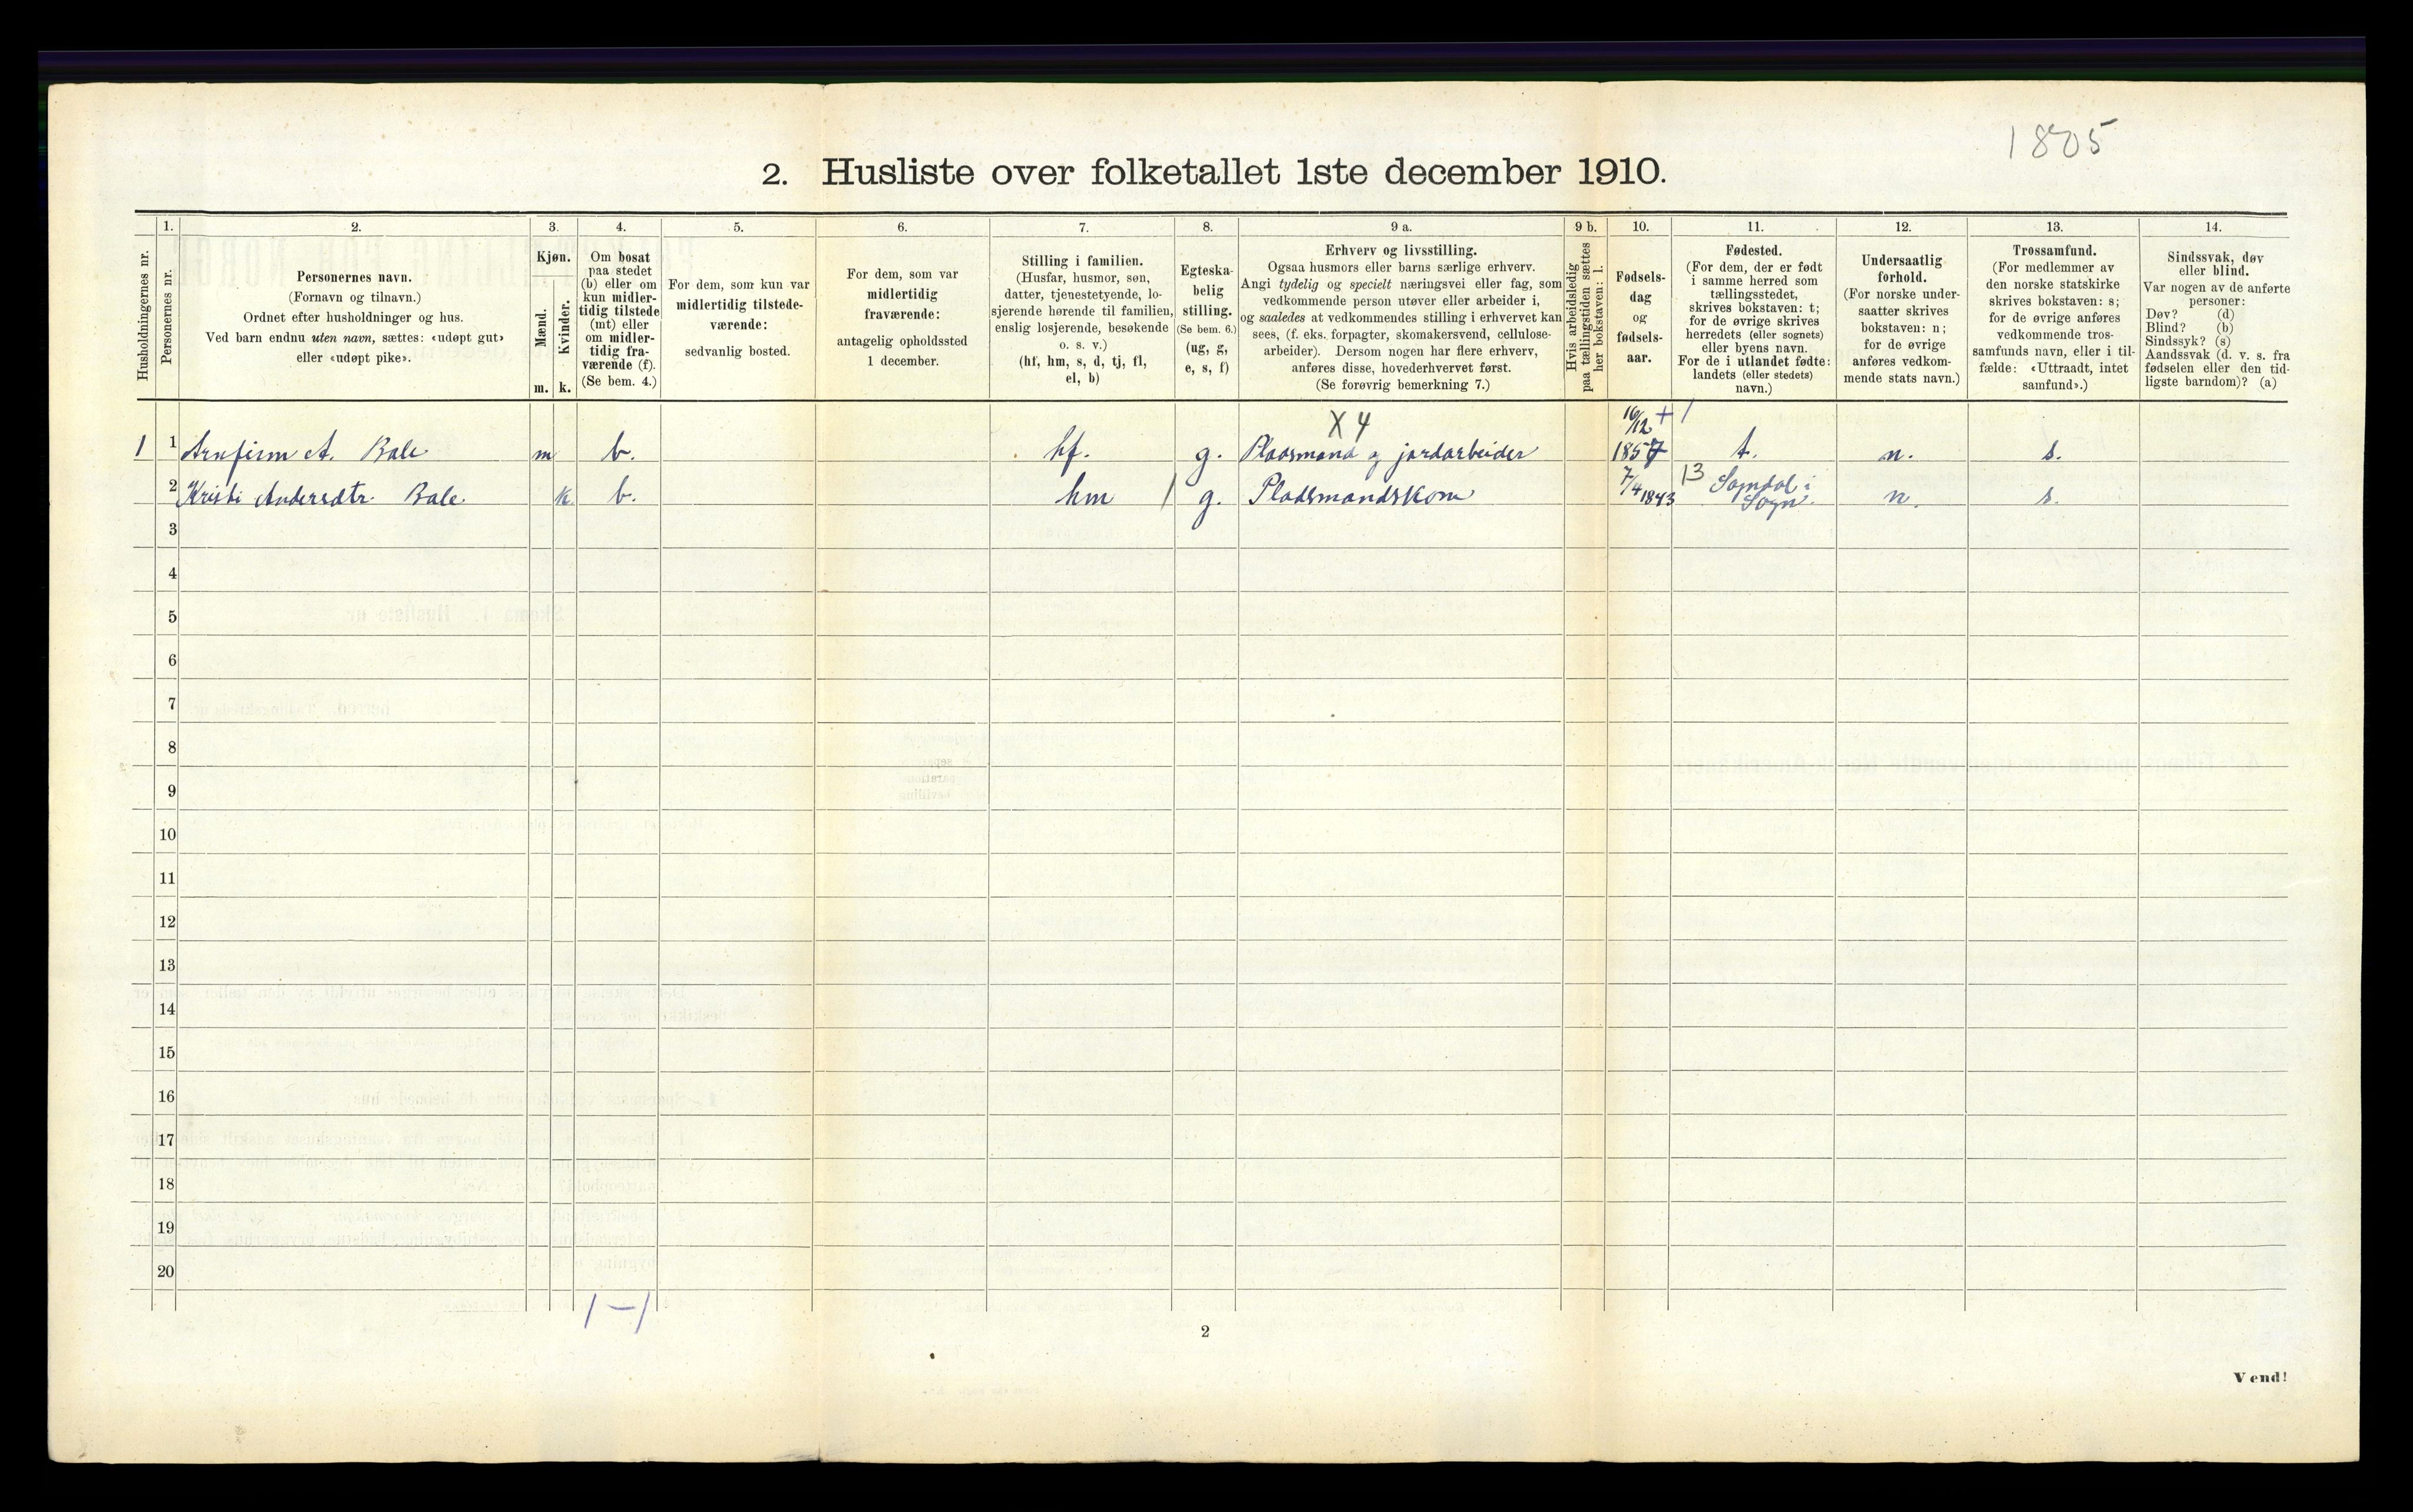 1805
2. Husliste over folketallet 1ste december 1910.
Husholdningernes nr.
1.
Personernes nr.
2.
Personernes navn.
(Fornavn og tilnavn.)
Ordnet efter husholdninger og hus.
Ved barn endnu uten navn, sættes: «udøpt gut»
eller «udøpt pike».
3.
Kjøn.
Mænd.
m.
Kvinder.
k.
4.
Om bosat
paa stedet
(b) eller om
kun midler-
tidig tilstede
(mt) eller
om midler-
tidig fra-
værende (f).
(Se bem. 4.)
5.
For dem, som kun var
midlertidig tilstede-
værende:
sedvanlig bosted.
6.
For dem, som var
midlertidig
fraværende:
antagelig opholdssted
1 december.
7.
Stilling i familien.
(Husfar, husmor, søn,
datter, tjenestetyende, lo-
sjerende hørende til familien,
enslig losjerende, besøkende
o. s. v.)
(hf, hm, s, d, tj, fl,
el, b)
8.
Egteska-
belig
stilling.
(Se bem. 6.)
(ug, g,
e, s, f)
9 a.
Erhverv og livsstilling.
Ogsaa husmors eller barns særlige erhverv.
Angi tydelig og specielt næringsvei eller fag, som
vedkommende person utøver eller arbeider i,
og saaledes at vedkommendes stilling i erhvervet kan
sees, (f. eks. forpagter, skomakersvend, cellulose-
arbeider). Dersom nogen har flere erhverv,
anføres disse, hovederhvervet først.
(Se forøvrig bemerkning 7.)
9 b.
Hvis arbeidsledig
paa tællingstiden sættes
her bokstaven: l.
10.
Fødsels-
dag
og
fødsels-
aar.
11.
Fødested.
(For dem, der er født
i samme herred som
tællingsstedet,
skrives bokstaven: t;
for de øvrige skrives
herredets (eller sognets)
eller byens navn.
For de i utlandet fødte:
landets (eller stedets)
navn.)
12.
Undersaatlig
forhold.
(For norske under-
saatter skrives
bokstaven: n;
for de øvrige
anføres vedkom-
mende stats navn.)
13.
Trossamfund.
(For medlemmer av
den norske statskirke
skrives bokstaven: s;
for de øvrige anføres
vedkommende tros-
samfunds navn, eller i til-
fælde: «Uttraadt, intet
samfund».)
14.
Sindssvak, døv
eller blind.
Var nogen av de anførte
personer:
Døv? (d)
Blind? (b)
Sindssyk? (s)
Aandssvak (d. v. s. fra
fødselen eller den tid-
ligste barndom)? (a)
X 4 16/12 + 1
1 1 Arnfinn A. Bale m b. hf. g. Pladsmand og jordarbeider 1857 t. n. s.
2 Kristi Andersdtr. Bale k b. hm g. Pladsmandskone 7/4 1843 13 Sogndal i
Sogn. n. s.
3
4
5
6
7
8
9
10
11
12
13
14
15
16
17
18
19
20
1 — 1
2
Vend!